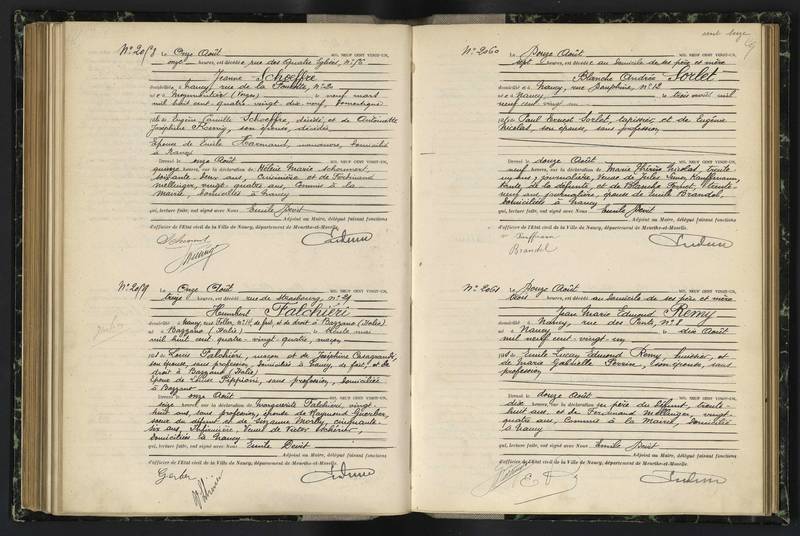 N° 2058 Le Onze Août MIL NEUF CENT VINGT-UN,
onze heures, est décédée rue des Quatre Églises, N°
Jeanne Schoeffre
domiciliée à Nancy, rue de la N° 2
le neuf mars
mil huit cent quatre vingt dix neuf, domestique
fille de Eugène Camille Schoeffre, décédé, et de Antoinette
Joséphine son épouse, décédée
Épouse de Emile Harmand, manœuvre, domicilié
à Nancy
Dressé le onze Août MIL NEUF CENT VINGT-UN,
quinze heures, sur la déclaration de Hélène Marie
soixante deux ans, Cuisinière et de Ferdinand
Mellinger, vingt quatre ans, Commis à la
Mairie, domiciliés à Nancy
qui, lecture faite, ont signé avec Nous Emile Devit
Adjoint au Maire, délégué faisant fonctions
d'officier de l'État civil de la Ville de Nancy, département de Meurthe-et-Moselle.
N° 2059 Le Onze Août MIL NEUF CENT VINGT-UN,
treize heures, est décédé rue de Strasbourg, N° 29
Humbert Falchiéri
domicilié à Nancy, rue N° 18, de fait, et de droit à Bazzano (Italie)
né à Bazzano (Italie) le trente mai
mil huit cent quatre-vingt-quatre, maçon
fils de Louis Falchiéri, maçon et de Joséphine Casagrande,
son épouse, sans profession, domiciliés à Nancy de fait, et de
droit à Bazzano (Italie)
Époux de Louise Pippioni, sans profession, domiciliée
à Bazzano
Dressé le onze Août MIL NEUF CENT VINGT-UN,
seize heures, sur la déclaration de Marguerite Falchiéri, vingt-
huit ans, sans profession, épouse de Raymond
soeur du défunt et de Suzanne cinquante-
six ans, Infirmière, Veuve de Victor
domiciliés à Nancy
qui, lecture faite, ont signé avec Nous Emile Devit
Adjoint au Maire, délégué faisant fonctions
d'officier de l'État civil de la Ville de Nancy, département de Meurthe-et-Moselle.
N° 2060 Le Douze Août MIL NEUF CENT VINGT-UN,
sept heures, est décédée au domicile de ses père et mère
Blanche Andrée Sorlet
domiciliée à Nancy, rue Dauphine, N° 12
née à Nancy le trois août mil
neuf cent vingt un
fille de Paul Ernest Sorlet, tapissier et de Eugénie
Nicolas, son épouse, sans profession
Dressé le douze Août MIL NEUF CENT VINGT-UN,
neuf heures, sur la déclaration de Marie Nicolas, trente
un ans, journalière, Veuve de Jules Kauffmann,
tante de la défunte, et de Blanche trente-
neuf ans, journalière, épouse de Emile Brandel,
domiciliées à Nancy
qui, lecture faite, ont signé avec Nous Emile Devit
Adjoint au Maire, délégué faisant fonctions
d'officier de l'État civil de la Ville de Nancy, département de Meurthe-et-Moselle.
Brandel
N° 2061 Le Douze Août MIL NEUF CENT VINGT-UN,
trois heures, est décédé au domicile de ses père et mère
Jean Marie Edmond Remy
domicilié à Nancy, rue des Ponts, N° 8
né à Nancy le dix Août
mil neuf cent vingt un
fils de Emile Lucien Edmond Remy, huissier, et
de Marie Gabrielle Perrin, son épouse, sans
profession
Dressé le douze Août MIL NEUF CENT VINGT-UN,
dix heures, sur la déclaration de son père du défunt, trente-
huit ans, et de Ferdinand Mellinger, vingt-
quatre ans, Commis à la Mairie, domiciliés
à Nancy
qui, lecture faite, ont signé avec Nous Emile Devit
Adjoint au Maire, délégué faisant fonctions
d'officier de l'État civil de la Ville de Nancy, département de Meurthe-et-Moselle.